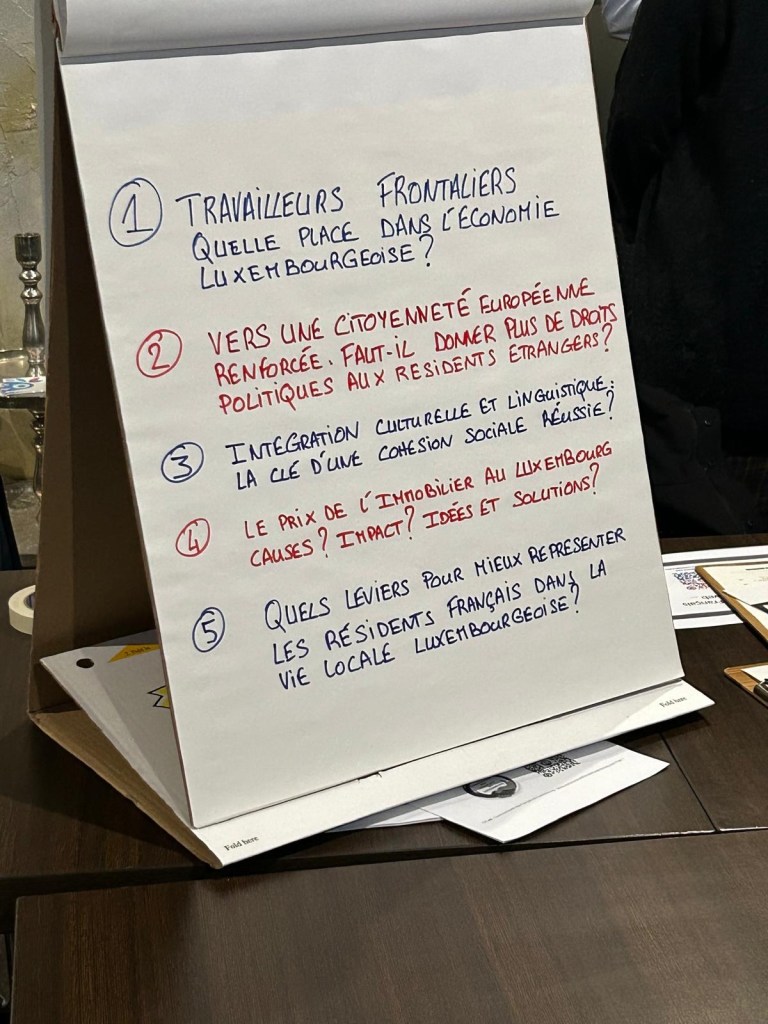 1 TRAVAILLEURS FRONTALIERS
QUELLE PLACE DANS L'ÉCONOMIE
LUXEMBOURGEOISE?
2 VERS UNE CITOYENNETÉ EUROPÉENNE
RENFORCÉE. FAUT-IL DONNER PLUS DE DROITS
POLITIQUES AUX RESIDENTS ETRANGERS?
3 INTEGRATION CULTURELLE ET LINGUISTIQUE:
LA CLE D'UNE COHESION SOCIALE RÉUSSIE?
4 LE PRIX DE L'IMMOBILIER AU LUXEMBOURG
CAUSES? IMPACT? IDÉES ET SOLUTIONS?
5 QUELS LEVIERS POUR MIEUX REPRESENTER
LES RÉSIDENTS FRANÇAIS DANS LA
VIE LOCALE LUXEMBOURGEOISE?
Fold here
Fold here